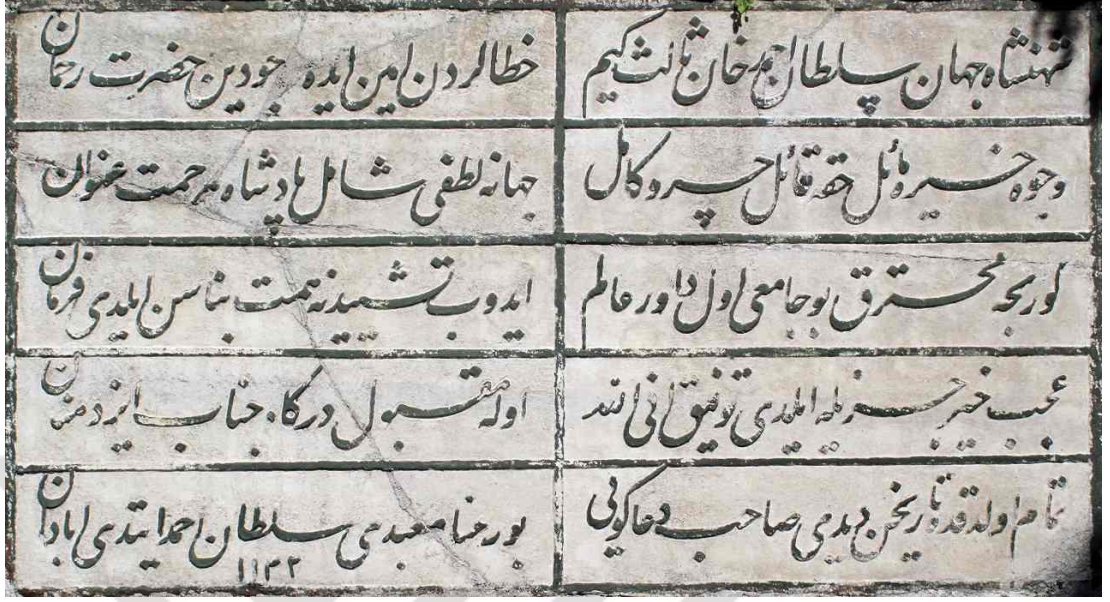 شهنشاه جهان سلطان احمد خان ثالث كيم
خطالردن امين ايده جودين حضرت رحمان
وجوه خيره مائل حقه قائل خسرو كامل
جهانه لطفى شامل پادشاه مرحمت عنوان
كوريجه محترق بو جامعى اول داور عالم
ايدوب تشييدنه همت بناسن ايلدى فرمان
عجب خير جزيله ايلدى توفيق انى
اوله مقبول درگاه جناب ايزد منان
تمام اولدقده تاريخن ديدى صاحب دعاگويى
بو رعنا معبدى سلطان احمد ايتدى ابادان
١١٣٢